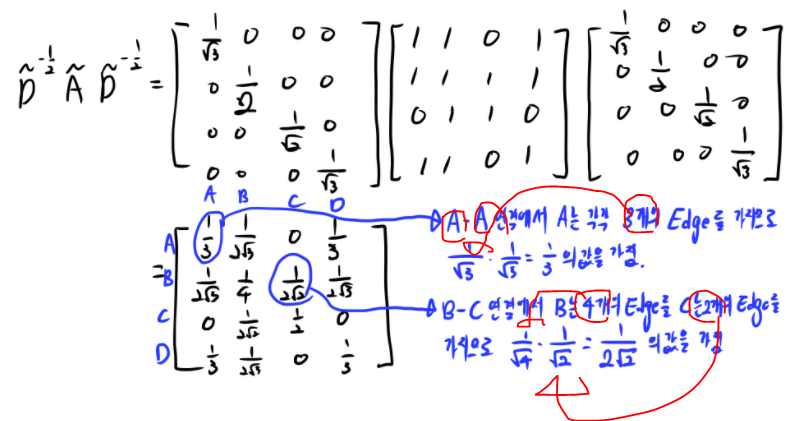 D̃^{-1/2} Ã D̃^{-1/2} = [ 1/√3 0 0 0 ] [ 1 1 0 1 ] [ 1/√3 0 0 0 ]
[ 0 1/2 0 0 ] [ 1 1 1 1 ] [ 0 1/2 0 0 ]
[ 0 0 1/√2 0 ] [ 0 1 1 0 ] [ 0 0 1/√2 0 ]
[ 0 0 0 1/√3 ] [ 1 1 0 1 ] [ 0 0 0 1/√3 ]
A B C D
= A [ 1/3 1/2√3 0 1/3 ]
B [ 1/2√3 1/4 1/2√2 1/2√3 ]
C [ 0 1/2√2 1/2 0 ]
D [ 1/3 1/2√3 0 1/3 ]
A-A 연결에서 A는 각각 3개의 Edge를 가짐으로
1/√3 · 1/√3 = 1/3 의 값을 가짐.
B-C 연결에서 B는 4개의 Edge를 C는 2개의 Edge를
가짐으로 1/√4 · 1/√2 = 1/2√2 의 값을 가짐